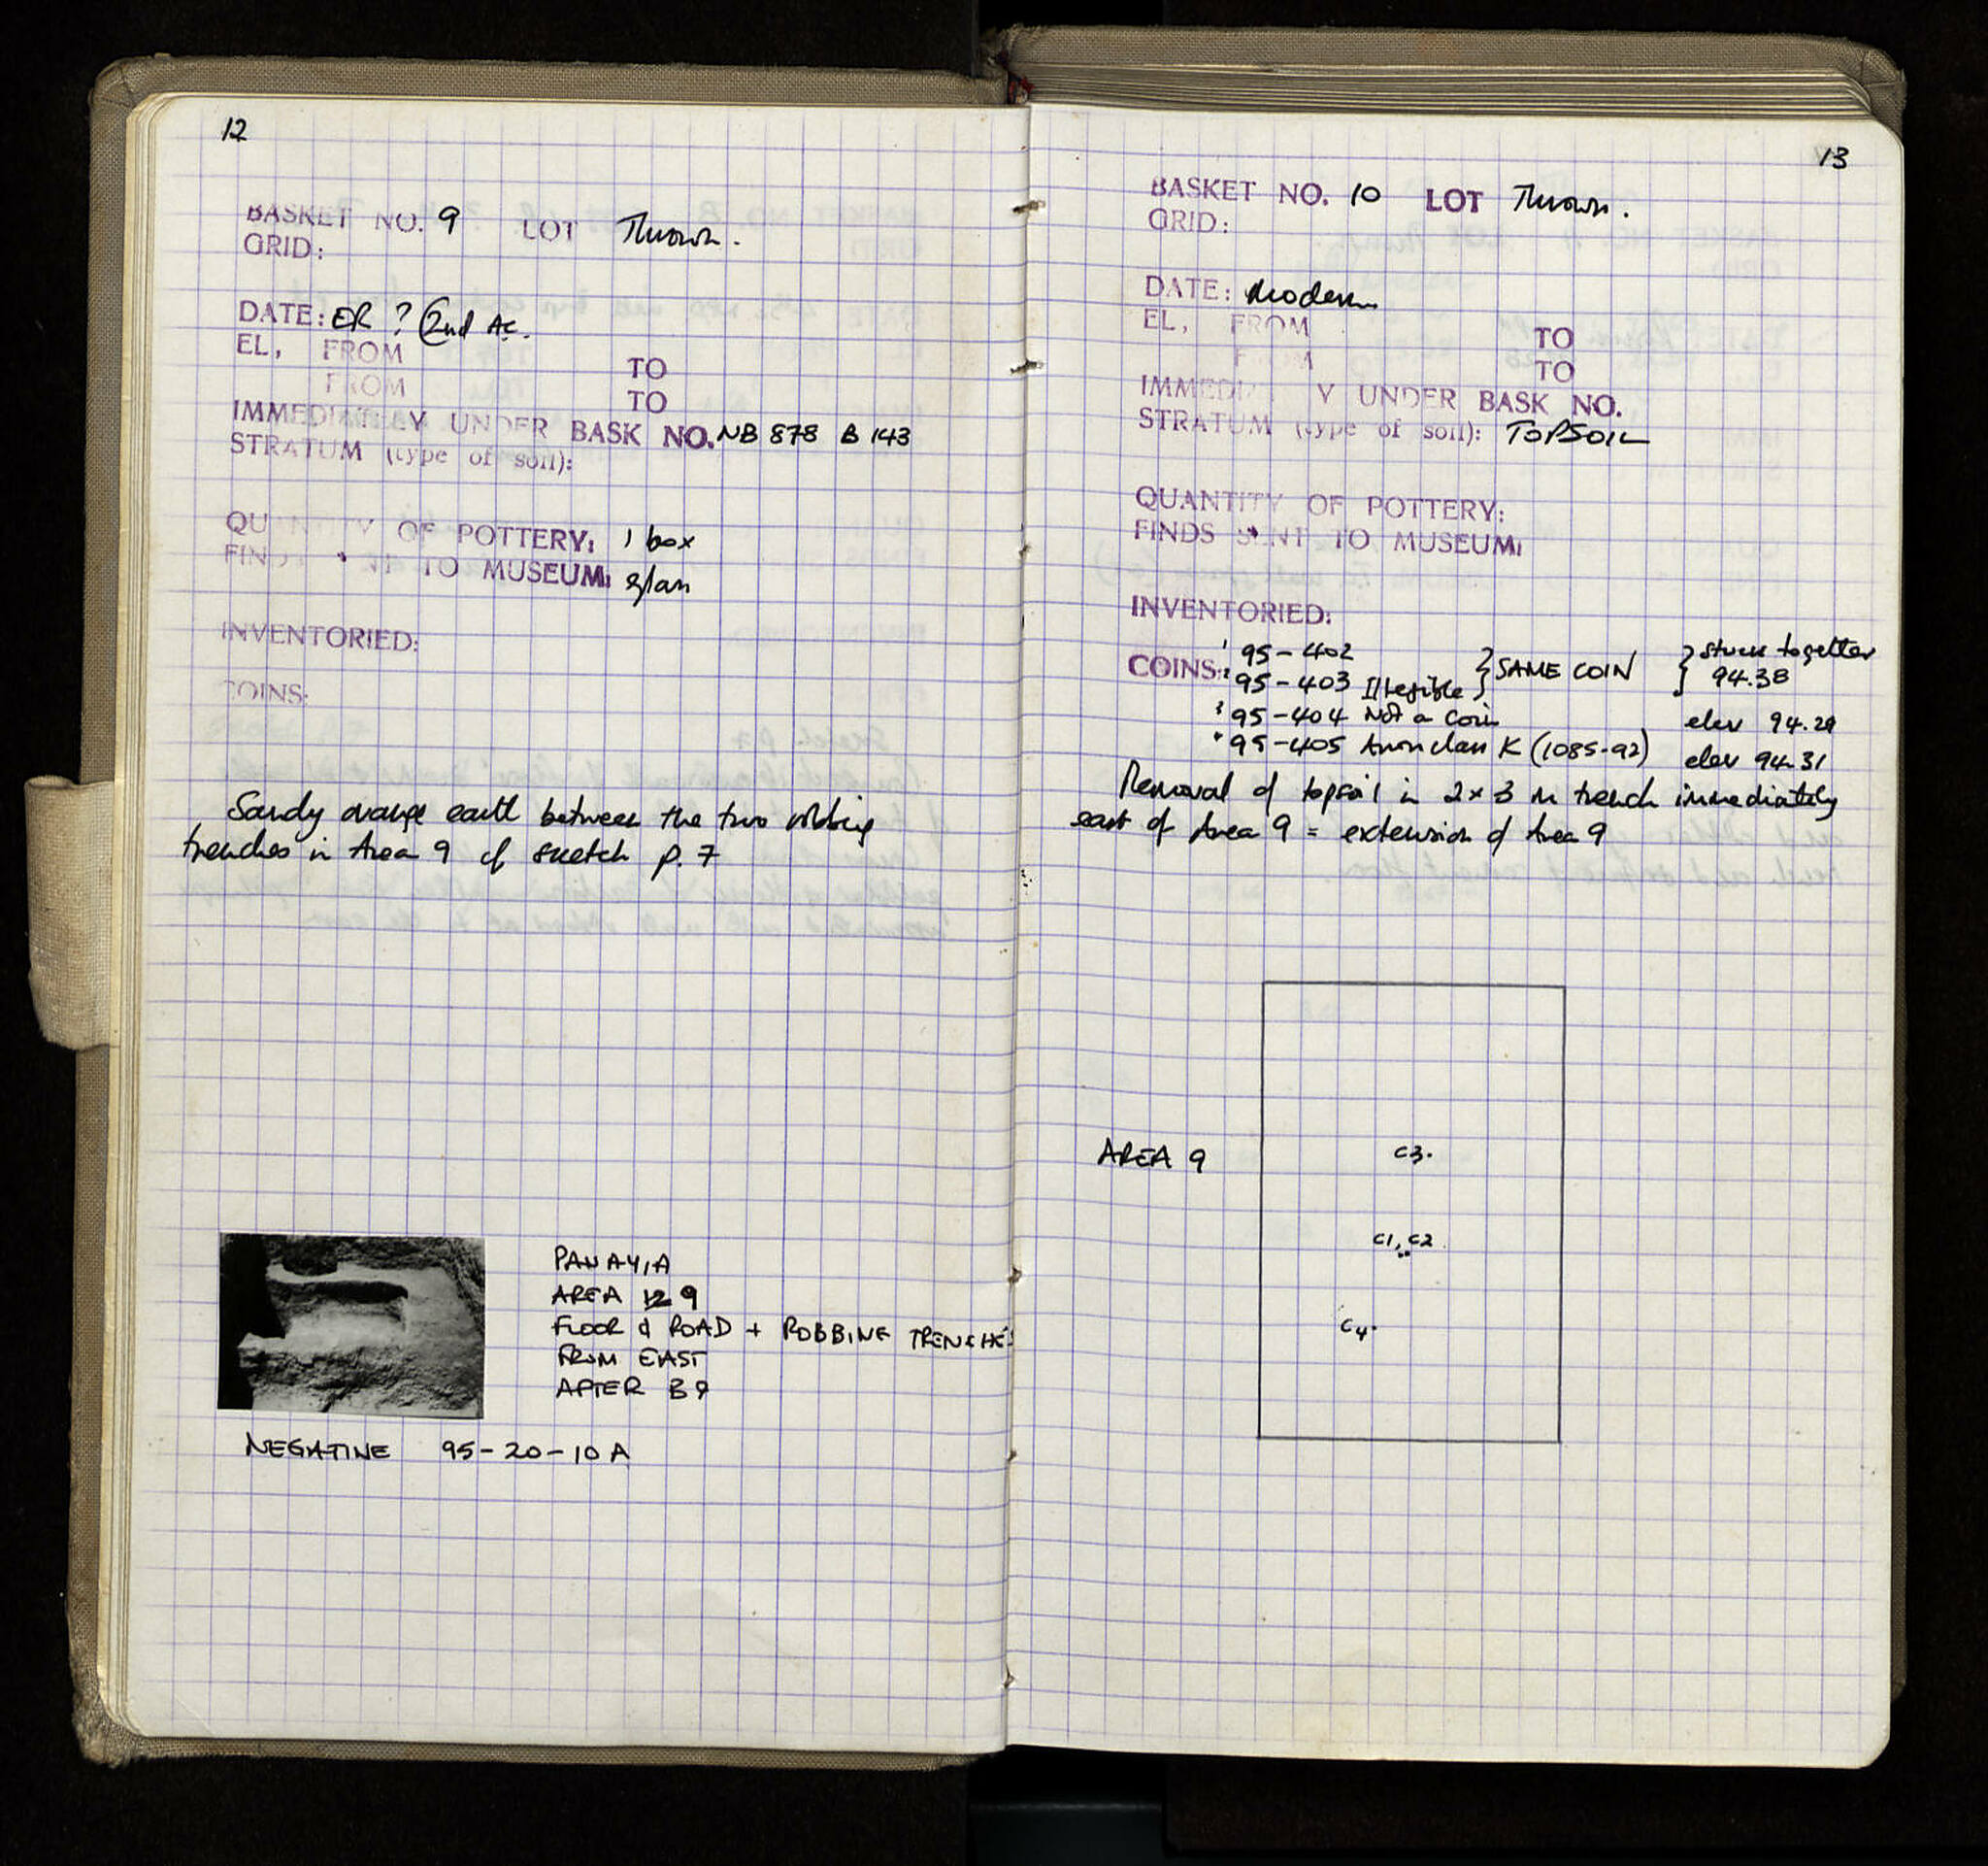 12
BASKET NO. 9 LOT Thrown.
GRID:
DATE: ER ? (2nd AC.
EL, FROM TO
FROM TO
IMMEDIATELY UNDER BASK NO. NB 878 B 143
STRATUM (type of soil):
QUANTITY OF POTTERY: 1 box
FINDS SENT TO MUSEUM: glass
INVENTORIED:
COINS:
Sandy orange earth between the two robbing
trenches in Area 9 cf sketch p. 7
PANAYIA
AREA 12 9
FLOOR & ROAD + ROBBING TRENCHES
FROM EAST
AFTER B9
NEGATIVE 95-20-10A
13
BASKET NO. 10 LOT Thrown.
GRID:
DATE: Modern
EL, FROM TO
FROM TO
IMMEDIATELY UNDER BASK NO.
STRATUM (type of soil): TOPSOIL
QUANTITY OF POTTERY:
FINDS SENT TO MUSEUM:
INVENTORIED:
COINS: 1 95-402 } SAME COIN } stuck together
2 95-403 Illegible 94.38
3 95-404 Not a coin elev 94.29
4 95-405 Anon class K (1085-92) elev 94.31
Removal of topsoil in 2x3 m trench immediately
east of Area 9 = extension of Area 9
C3.
AREA 9
C1, C2
C4.